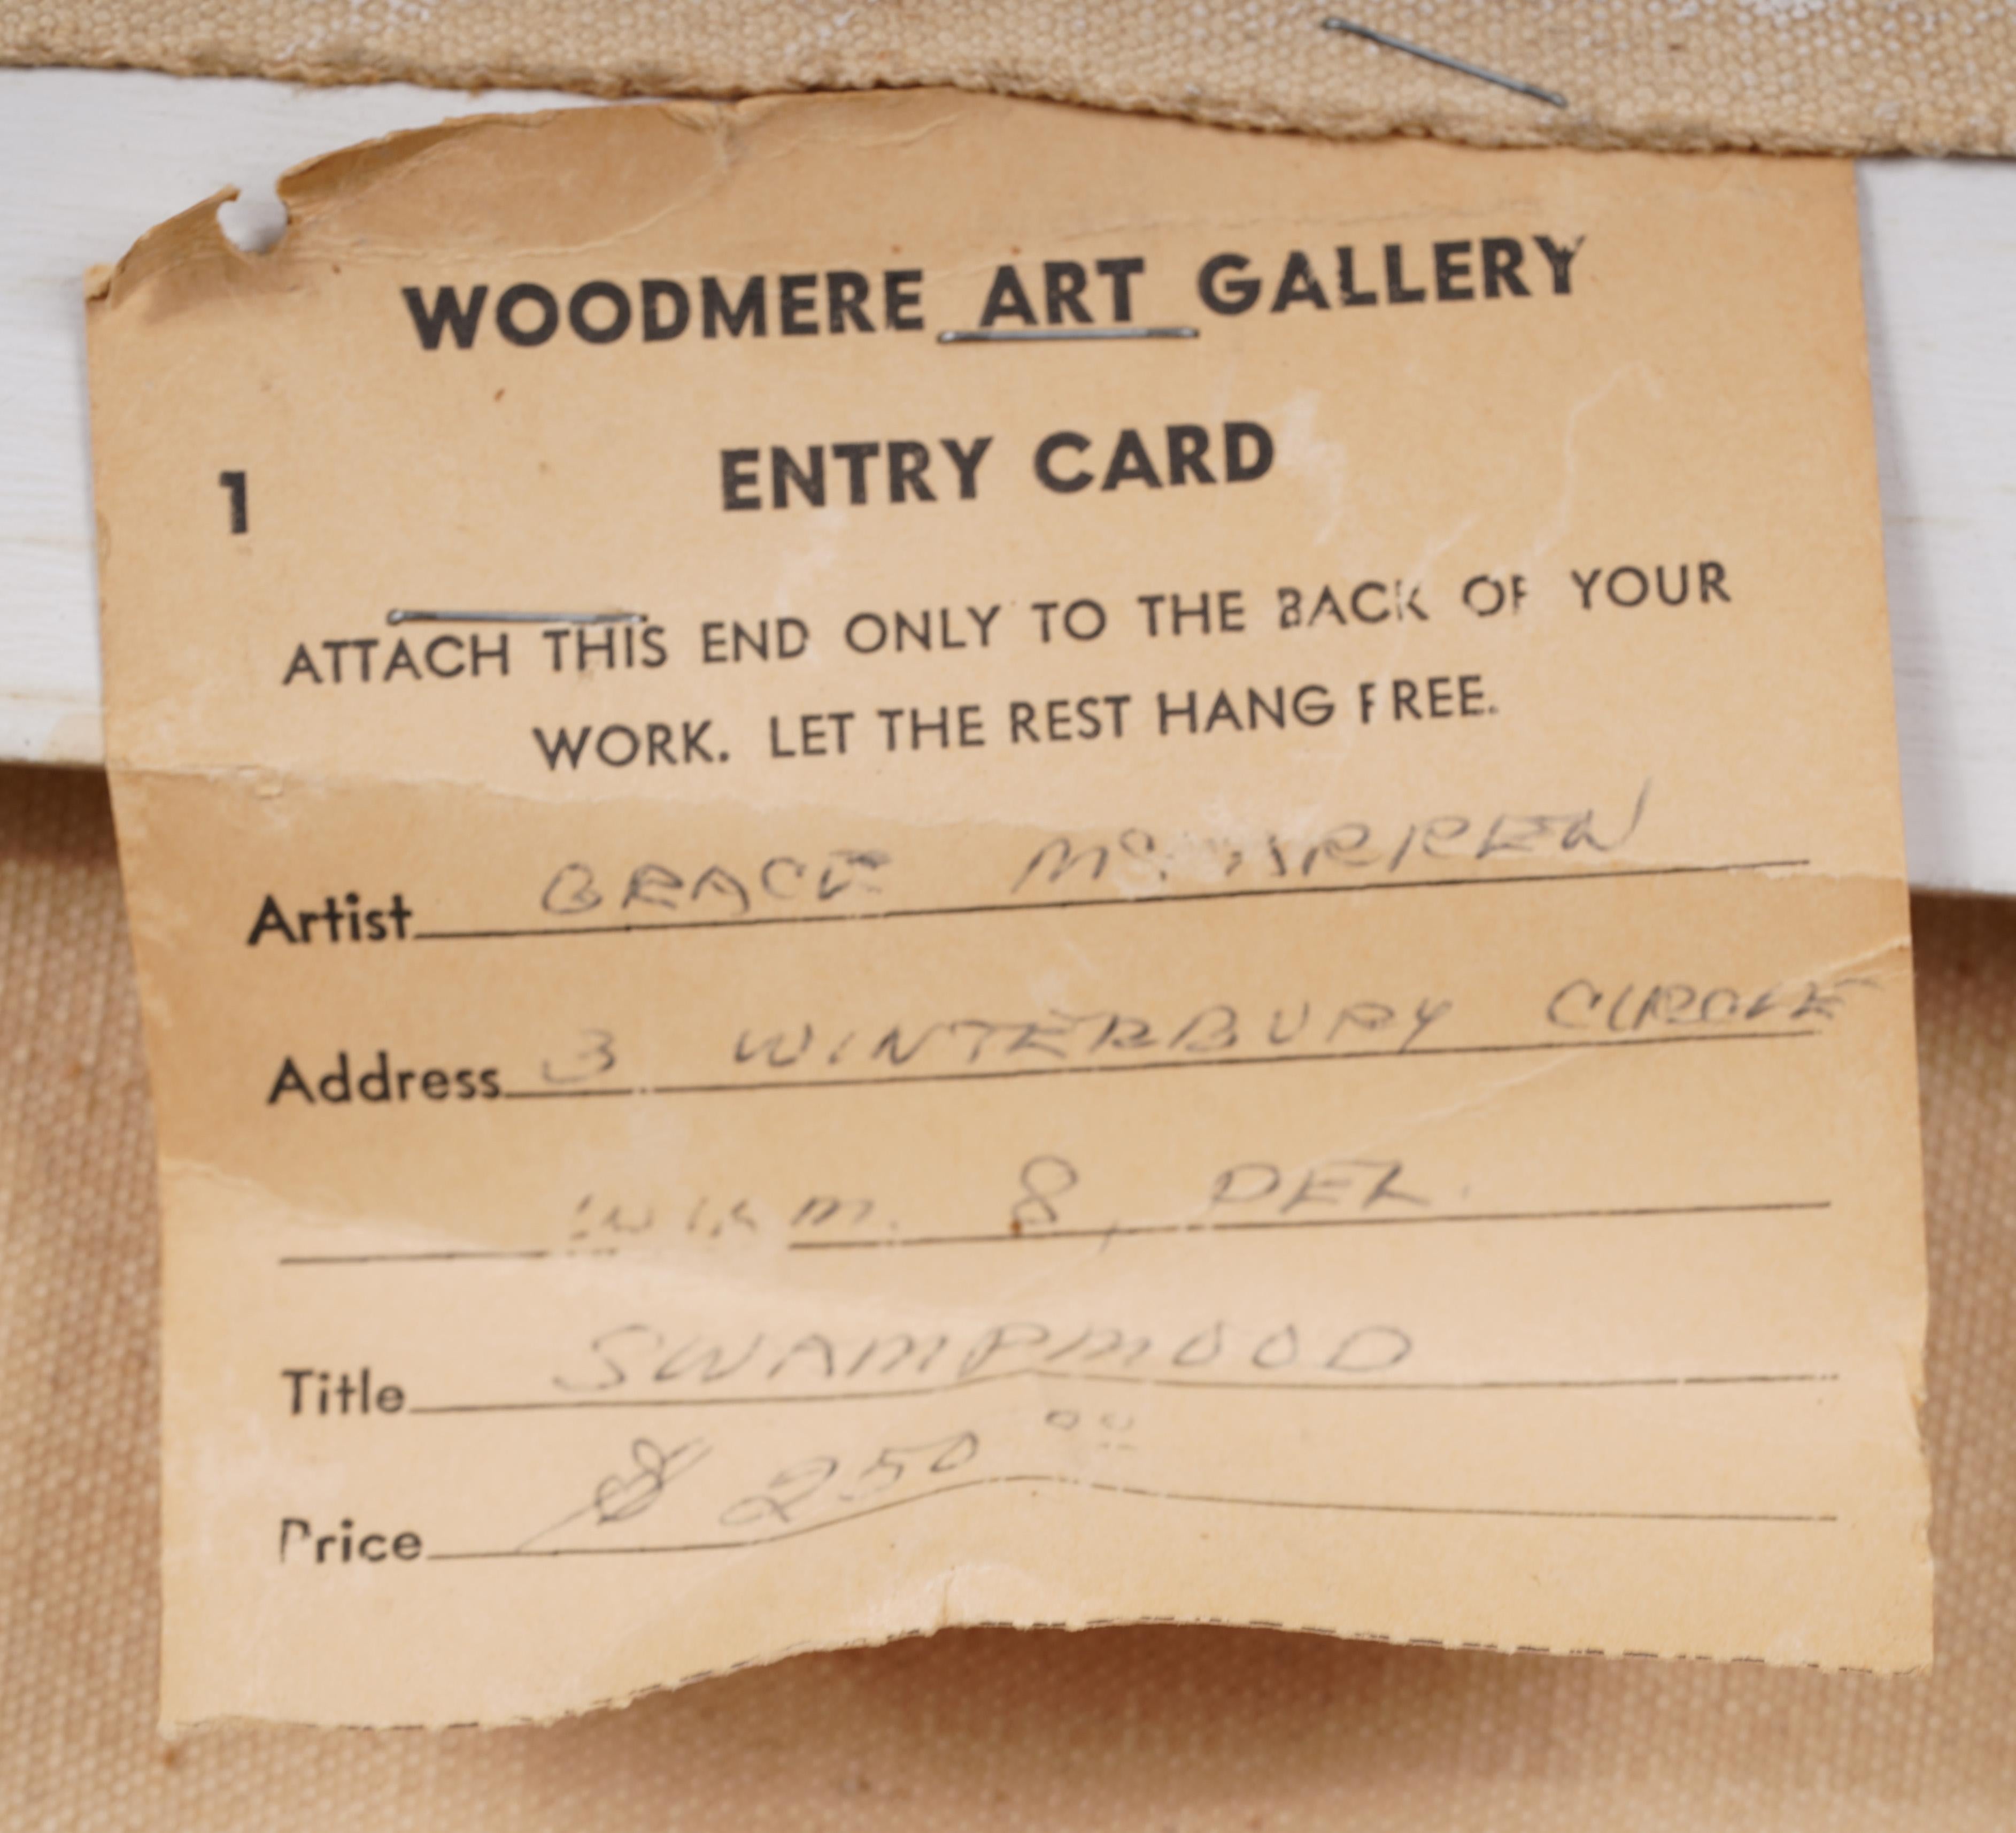 WOODMERE ART GALLERY
ENTRY CARD
1
ATTACH THIS END ONLY TO THE BACK OF YOUR
WORK. LET THE REST HANG FREE.
Artist GRACE
Address 3 WINTERBURY CIRCLE
8, DEL.
Title SWAMPMOOD
Price $ 250 00